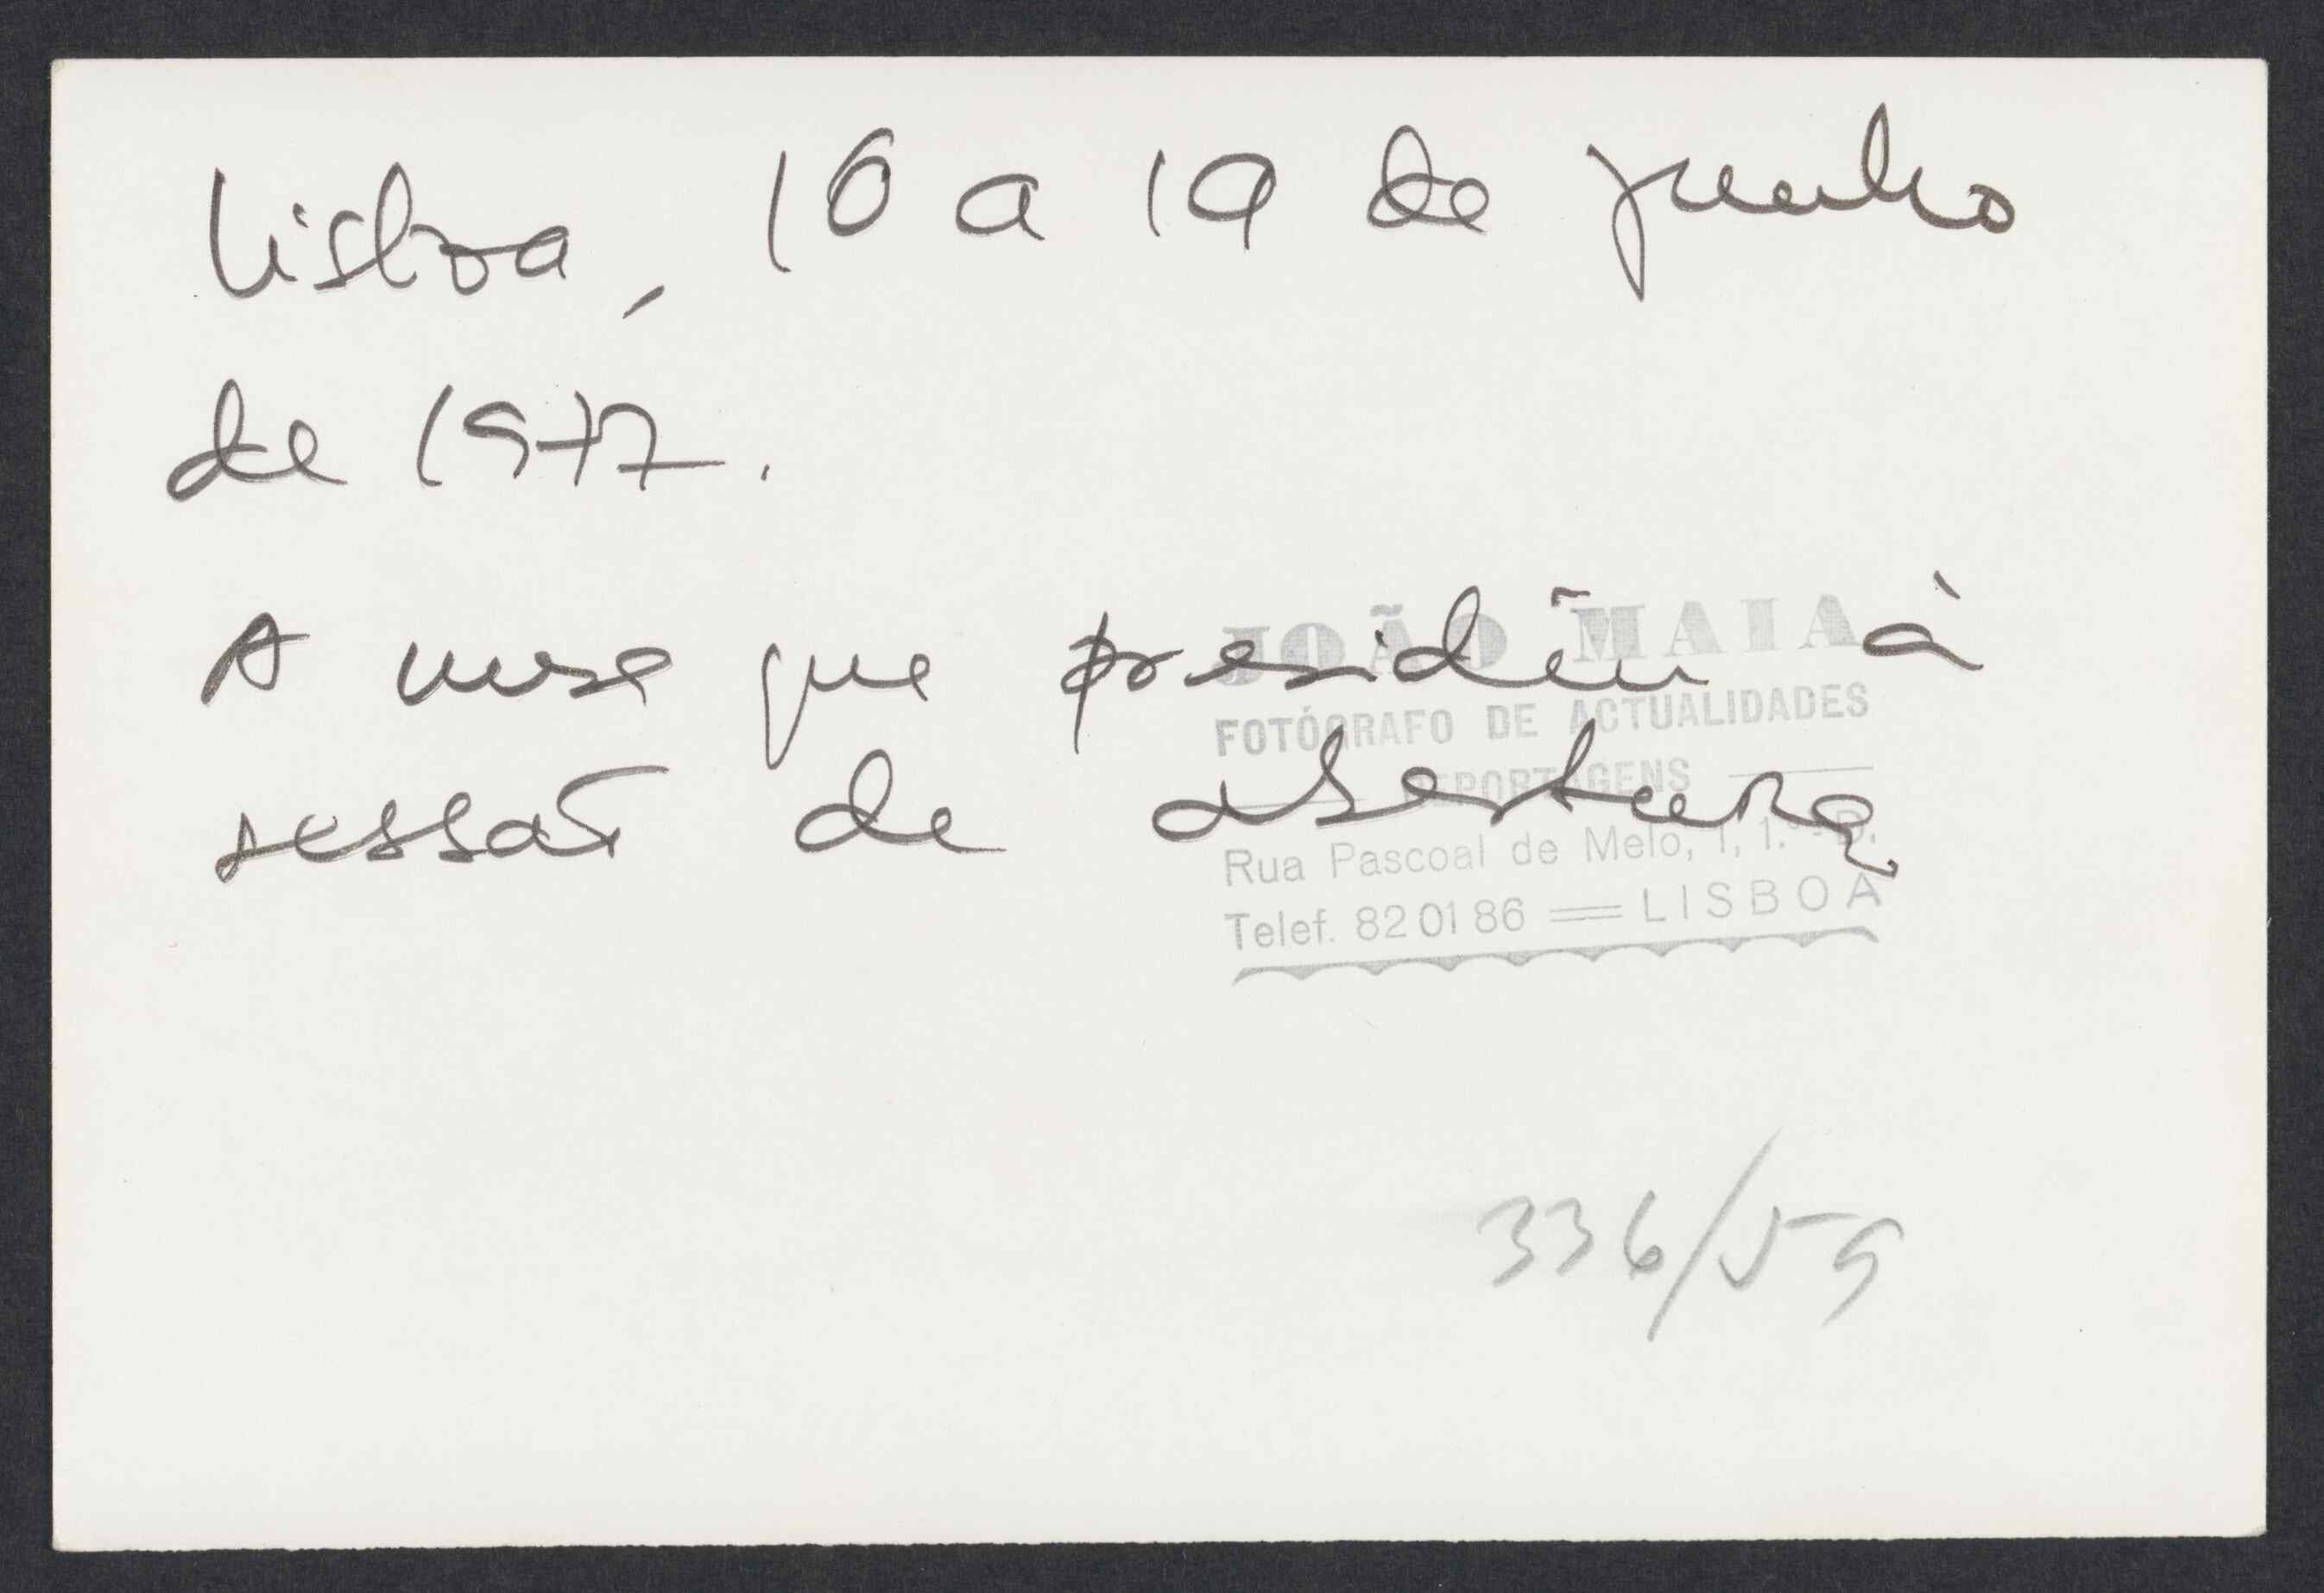 Lisboa, 16 a 19 de junho
de 1977.
A mesa que presidiu à
sessão de abertura
JOÃO MAIA
FOTÓGRAFO DE ACTUALIDADES
REPORTAGENS
Rua Pascoal de Melo, 1, 1.º-D.
Telef. 820186 = LISBOA
336/59